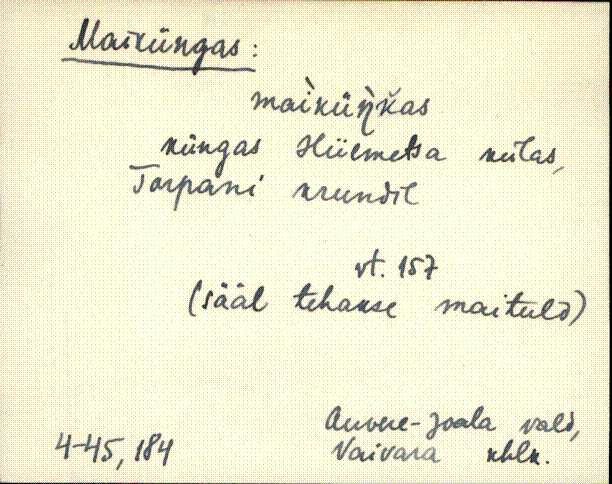 Maiküngas:
mai̬küŋ̀k̆as
küngas Hiiemetsa külas,
Torpani krundil
vt. 157
(sääl tehakse maituld)
Auvere-Joala vald,
4-45, 184
Vaivara khlk.